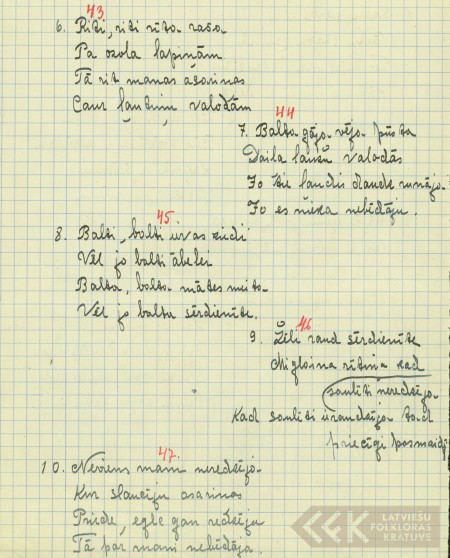 43
6. Riti, riti rīta rasa
Pa ozola lapiņām
Tā rit manas asariņas
Caur ļaudiņu valodām
44
7. Balta gāju vēja pūsta
Daila ļaužu valodās
Jo šie ļaudis daudz runāja
Jo es nieka nebēdāju.
45.
8. Balti, balti ievas ziedi
Vēl jo balti ābeles
Balta, balta mātes meita
Vēl jo balta sērdienīte.
46
9. Žēli raud sērdienīte
Miglaina rītiņa kad
saulīti neredzēja.
Kad saulīti ieraudzīja tad
priecīgi pasmaidīj
47.
10. Neviens mani neredzēja
Kur slaucīju asariņas
Priede, egle gan redzēja
Tā par mani nebēdāja.
LATVIEŠU
FOLKLORAS
KRĀTUVE